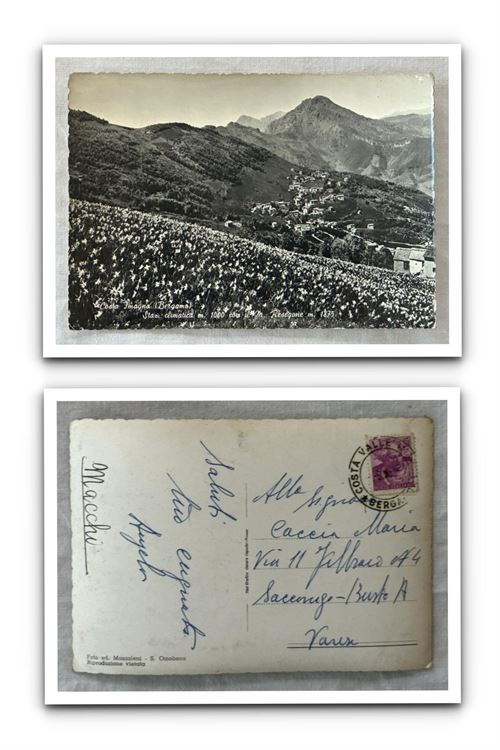 Costa Imagna (Bergamo)
Staz. climatica m. 1000 con il M. Resegone m. 1875
Macchi
Saluti
tuo cugnato
Angelo
Alla Signora
Caccia Maria
Via 11 Febbraio N 4
Sacconago - Busto A
Varese
COSTA VALLE
BERGAMO
Foto ed. Mazzoleni - S. Omobono
Riproduzione vietata